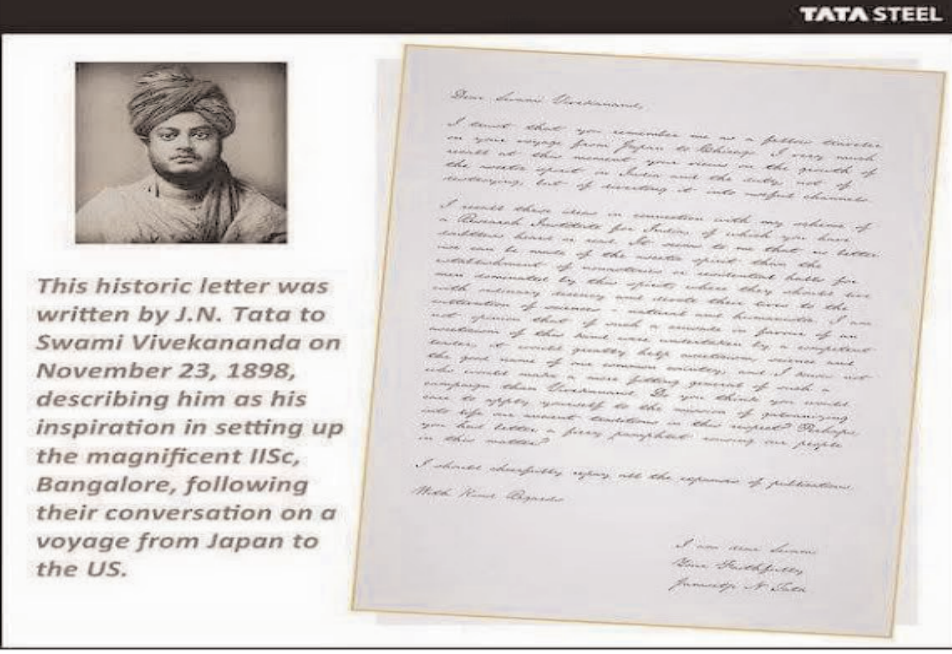 TATA STEEL
This historic letter was
written by J.N. Tata to
Swami Vivekananda on
November 23, 1898,
describing him as his
inspiration in setting up
the magnificent IISc,
Bangalore, following
their conversation on a
voyage from Japan to
the US.
Dear Swami Vivekananda,
I trust that you remember me as a fellow traveller
on your voyage from Japan to Chicago. I very much
recall at this moment your views on the growth of
the ascetic spirit in India and the duty, not of
destroying, but of diverting it into useful channels.
I recall these ideas in connection with my scheme of
a Research Institute for India, of which you have
doubtless heard or read. It seems to me that no better
use can be made of the ascetic spirit than the
establishment of monasteries or residential halls for
men dominated by this spirit, where they should live
with ordinary decency and devote their lives to the
cultivation of sciences - natural and humanistic. I am
of opinion that if such a crusade in favour of an
asceticism of this kind were undertaken by a competent
leader, it would greatly help asceticism, science and
the good name of our common country; and I know not
who would make a more fitting general of such a
campaign than Vivekananda. Do you think you would
care to apply yourself to the mission of galvanizing
into life our ancient traditions in this respect? Perhaps
you had better a fiery pamphlet rousing our people
in this matter?
I should cheerfully repay all the expenses of publication.
With Kind Regards
I am dear Swami
Your Faithfully
Jamsetji N Tata